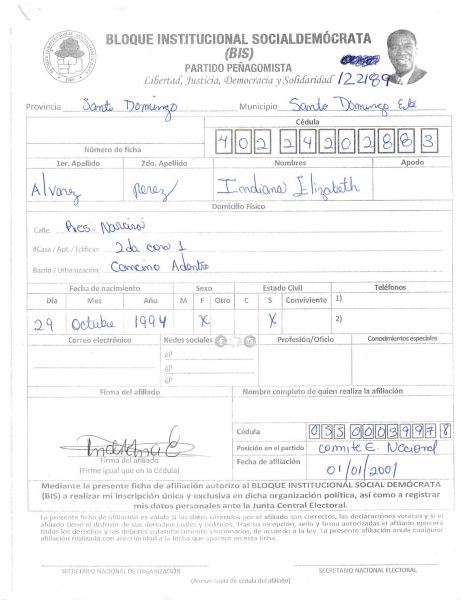 BLOQUE INSTITUCIONAL SOCIALDEMÓCRATA
(BIS)
PARTIDO PEÑAGOMISTA
Libertad, Justicia, Democracia y Solidaridad 122189
Provincia Santo Domingo Municipio Santo Domingo Este
Cédula
Número de ficha 40224202883
1er. Apellido 2do. Apellido Nombres Apodo
Alvarez Perez Indiana Elizabeth
Domicilio Físico
Calle: Res. Narciso
#Casa / Apt. / Edificio: 2da casa 1
Barrio / Urbanización: Cancino Adentro
Fecha de nacimiento Sexo Estado Civil Teléfonos
Día Mes Año M F Otro C S Conviviente 1)
29 Octubre 1994 X X 2)
Correo electrónico Redes sociales Profesión/Oficio Conocimientos especiales
@
@
@
Firma del afiliado Nombre completo de quien realiza la afiliación
Cédula 05500039978
Posición en el partido comite E. Nacional
Firma del afiliado Fecha de afiliación 01/01/2001
(Firme igual que en la Cédula)
Mediante la presente ficha de afiliación autorizo al BLOQUE INSTITUCIONAL SOCIAL DEMÓCRATA
(BIS) a realizar mi inscripción única y exclusiva en dicha organización política, así como a registrar
mis datos personales ante la Junta Central Electoral.
La presente ficha de afiliación es válida si las datos ofrecidos por el afiliado son correctos, las declaraciones veraces y si el
afiliado tiene el disfrute de sus derechos civiles y políticos. Tras su recepción, sello y firma autorizadas el afiliado ejercerá
todos los derechos y los deberes estatutariamente sancionados, de acuerdo a la ley. La presente afiliación anula cualquier
afiliación realizada con anterioridad a la fecha que aparece en esta ficha.
SECRETARIO NACIONAL DE ORGANIZACIÓN SECRETARIO NACIONAL ELECTORAL
(Anexar copia de cédula del afiliado)